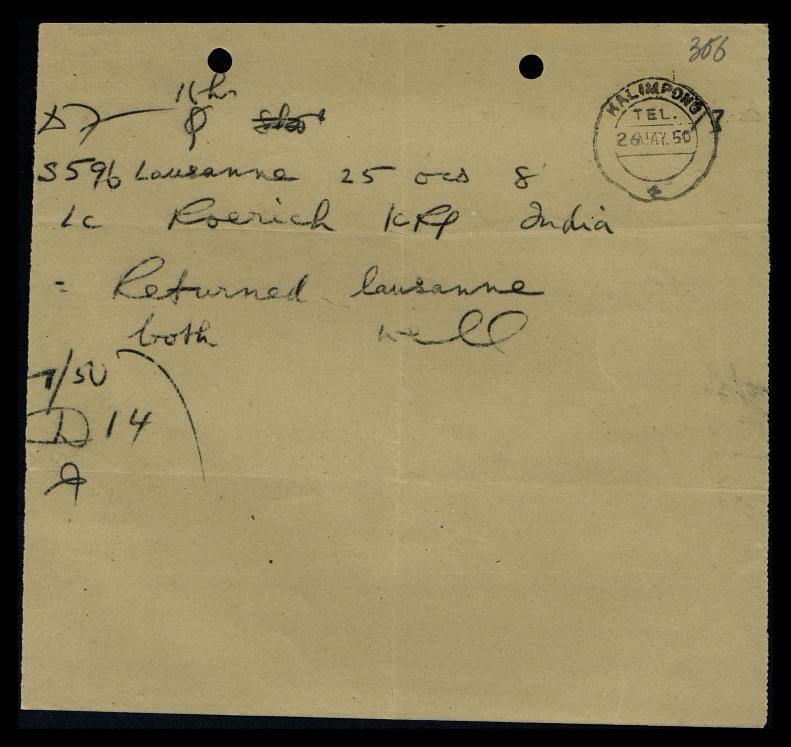 306
KALIMPONG
TEL.
26 MAY. 50
11hr
S596 Lausanne 25 ocs 8
Lc Roerich KPg India
= Returned lausanne
both well
7/50
D 14